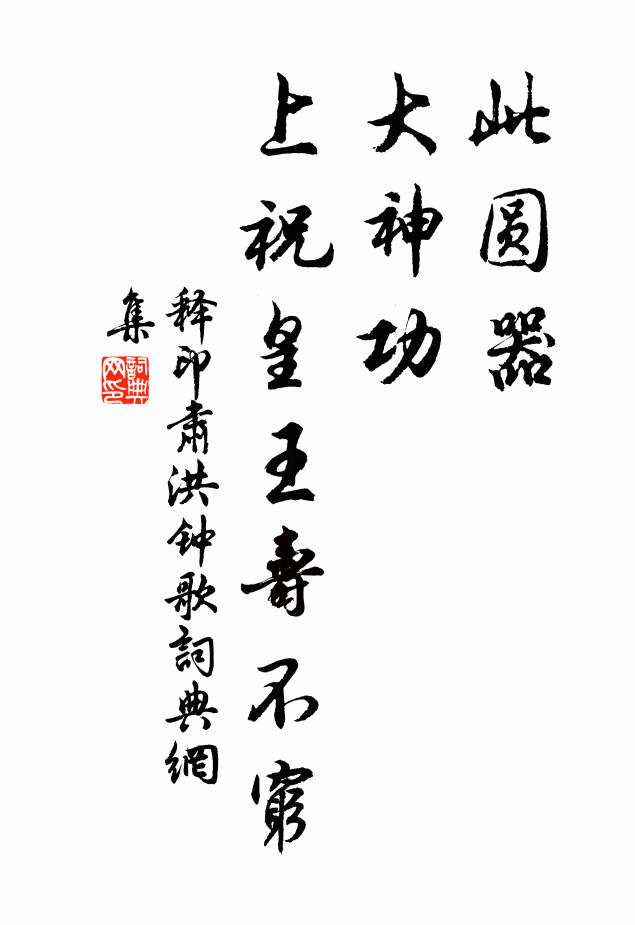 此圆器
大神功
上祝皇王壽不窮
释印肃洪钟歌詞典網
集
詞典
网印